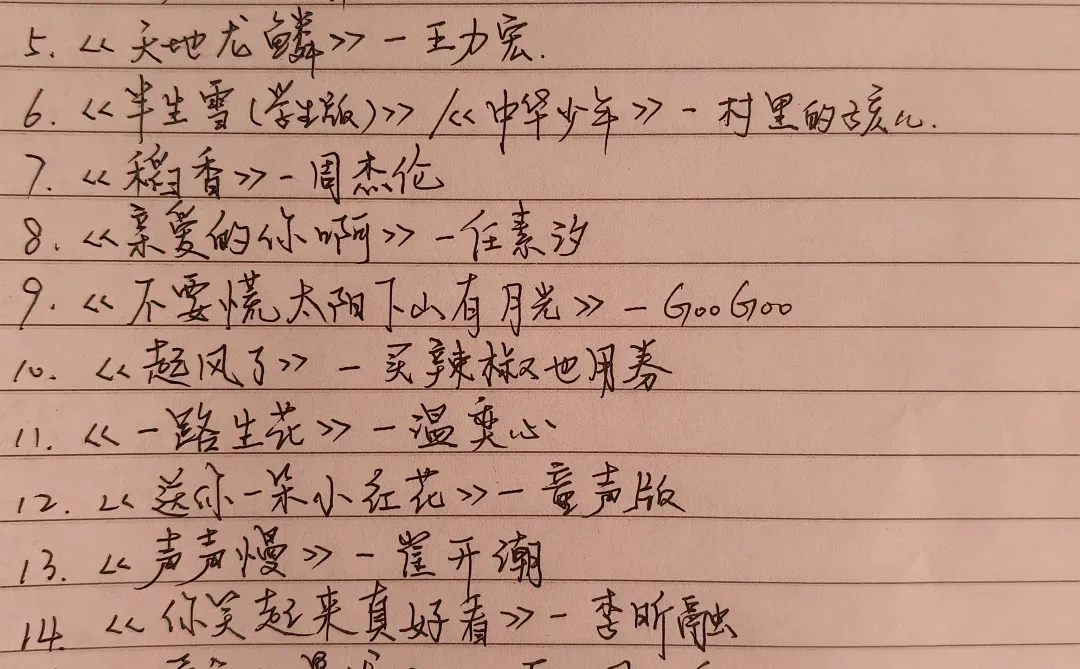 5. 《天地龙鳞》-王力宏.
6. 《半生雪(学生版)》/《中华少年》-村里的孩儿.
7. 《稻香》-周杰伦
8. 《亲爱的你啊》-任素汐
9. 《不要慌太阳下山有月光》-GooGoo
10. 《起风了》-买辣椒也用券
11. 《一路生花》-温奕心
12. 《送你一朵小红花》-童声版
13. 《声声慢》-崔开潮
14. 《你笑起来真好看》-李昕融